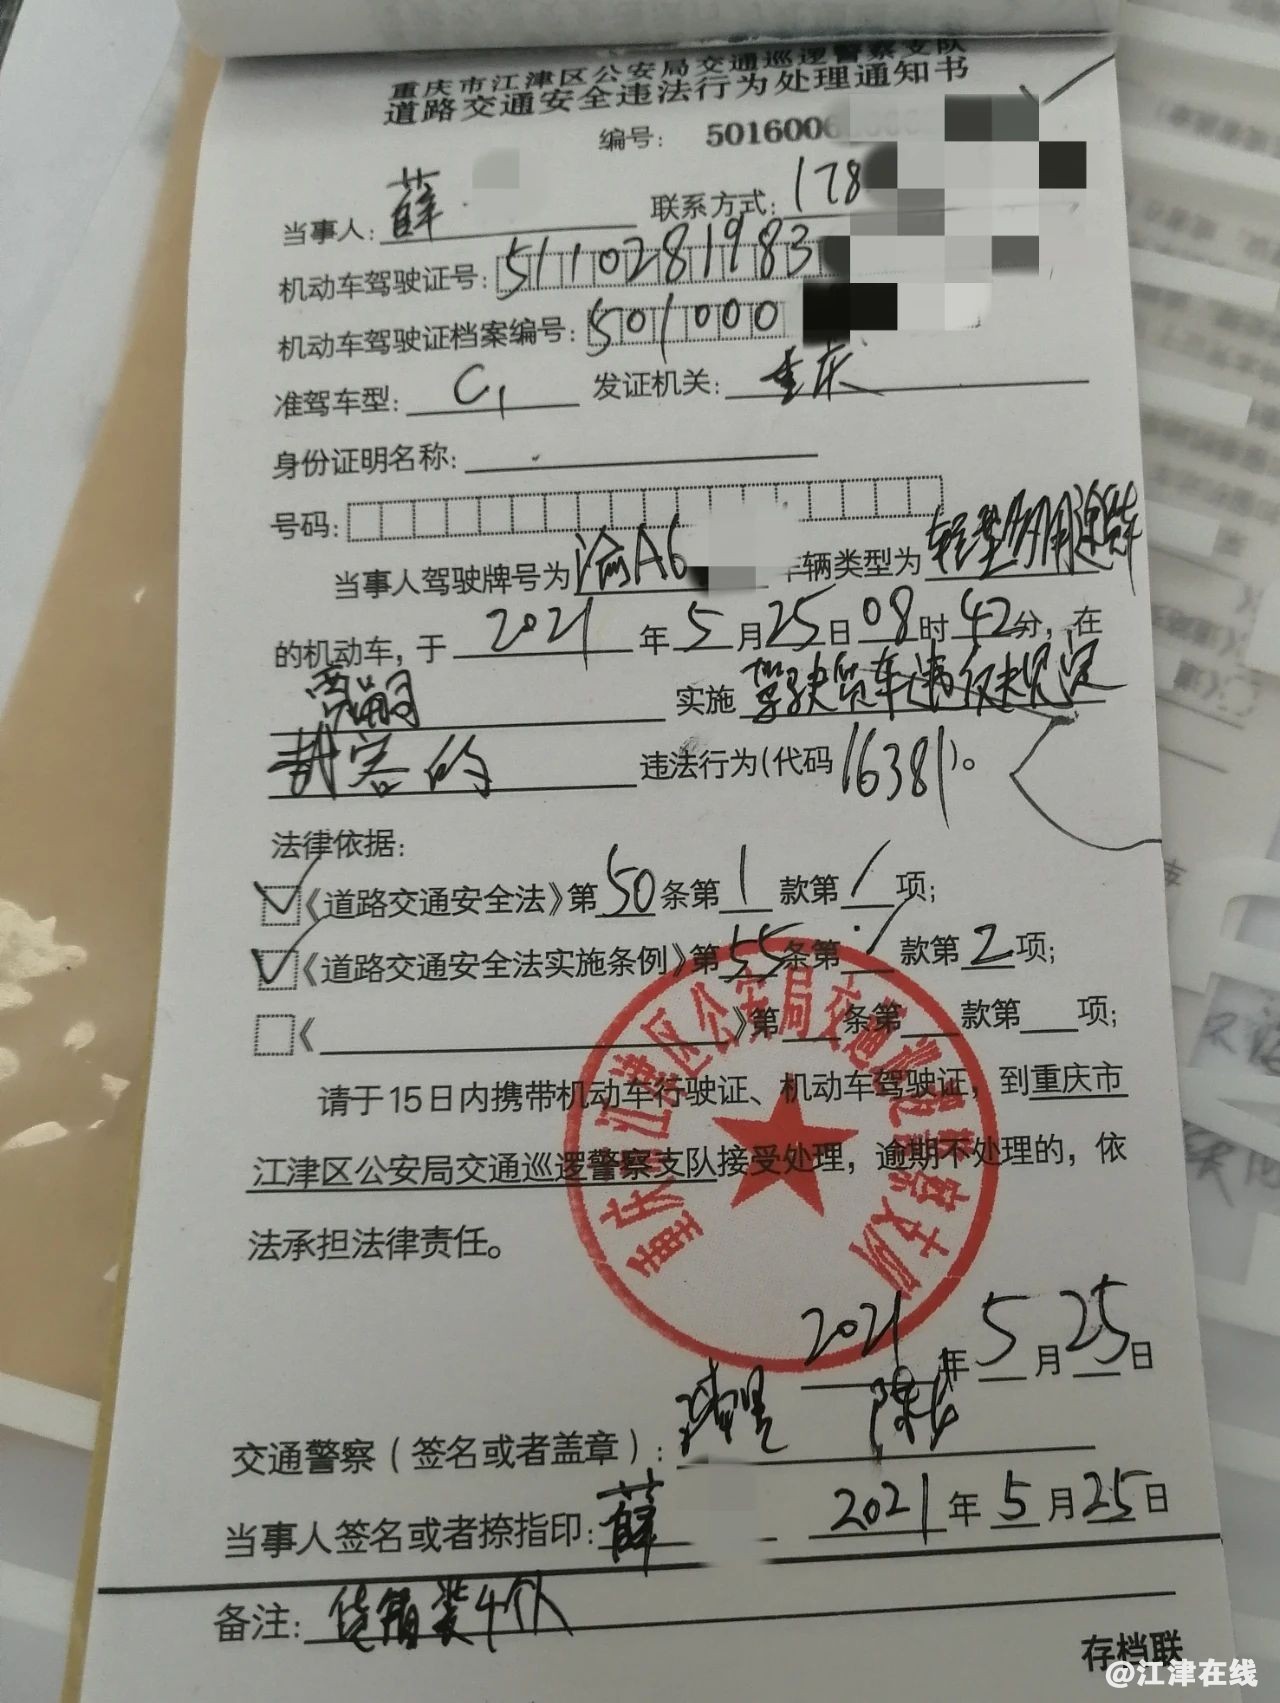 重庆市江津区公安局交通巡逻警察支队
道路交通安全违法行为处理通知书
编号： 5016006
当事人: 薛 联系方式: 178
机动车驾驶证号: 5110281983
机动车驾驶证档案编号: 501000
准驾车型: C1 发证机关: 重庆
身份证明名称:
号码:
当事人驾驶牌号为 渝A6 车辆类型为 轻型多用途货车
的机动车, 于 2021 年 5 月 25 日 08 时 42 分, 在
实施 驾驶货车违反规定
载客的 违法行为(代码 16381)。
法律依据:
《道路交通安全法》第 50 条第 1 款第 / 项;
《道路交通安全法实施条例》第 55 条第 / 款第 2 项;
《 》第 条第 款第 项;
请于15日内携带机动车行驶证、机动车驾驶证, 到重庆市
江津区公安局交通巡逻警察支队接受处理, 逾期不处理的, 依
法承担法律责任。
重庆市江津区公安局交通巡逻警察支队
2021 年 5 月 25 日
交通警察（签名或者盖章）: 陈
当事人签名或者捺指印: 薛 2021 年 5 月 25 日
备注: 货箱装4个人
存档联
@江津在线